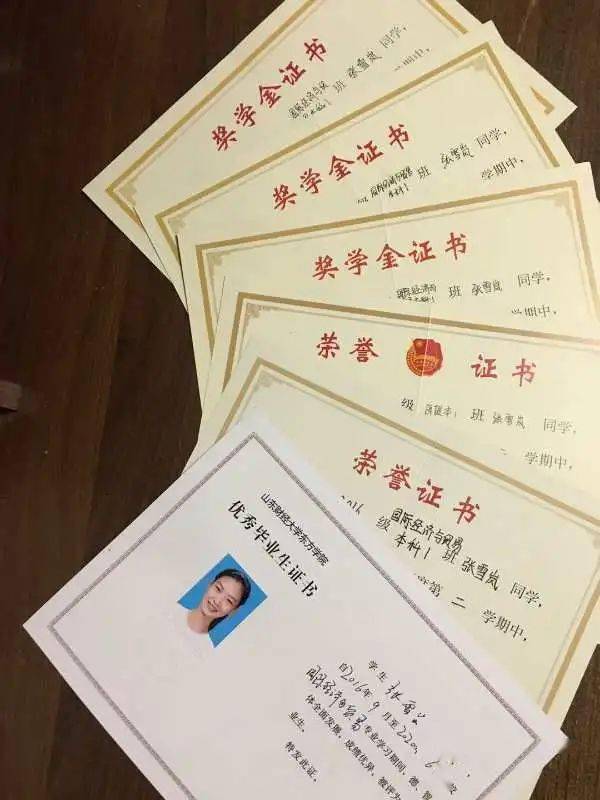 奖学金证书
班 张雪岚 同学,
奖学金证书
本科1 班 张雪岚 同学,
学期中,
奖学金证书
班 张雪岚 同学,
学期中,
荣誉 证书
级 班 张雪岚 同学,
二 学期中,
荣誉证书
2016 级 国际经济与贸易
本科1 班 张雪岚 同学,
第 二 学期中,
山东财经大学东方学院
优秀毕业生证书
学生 张雪
自2016年9月至2020 6
专业学习期间,德、智
体全面发展,成绩优异,被评为
业生。
特发此证。